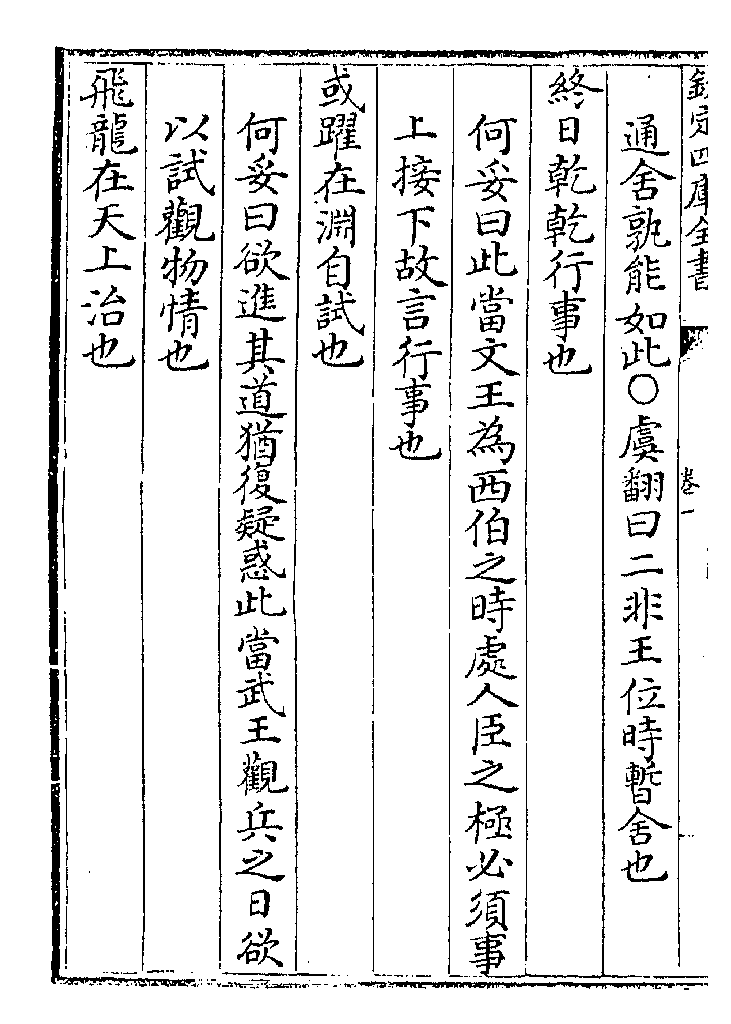 欽定四庫全書
卷一
通舍孰能如此○虞翻曰二非王位時暫舍也
終日乾乾行事也
何妥曰此當文王為西伯之時處人臣之極必須事
上接下故言行事也
或躍在淵自試也
何妥曰欲進其道猶復疑惑此當武王觀兵之日欲
以試觀物情也
飛龍在天上治也